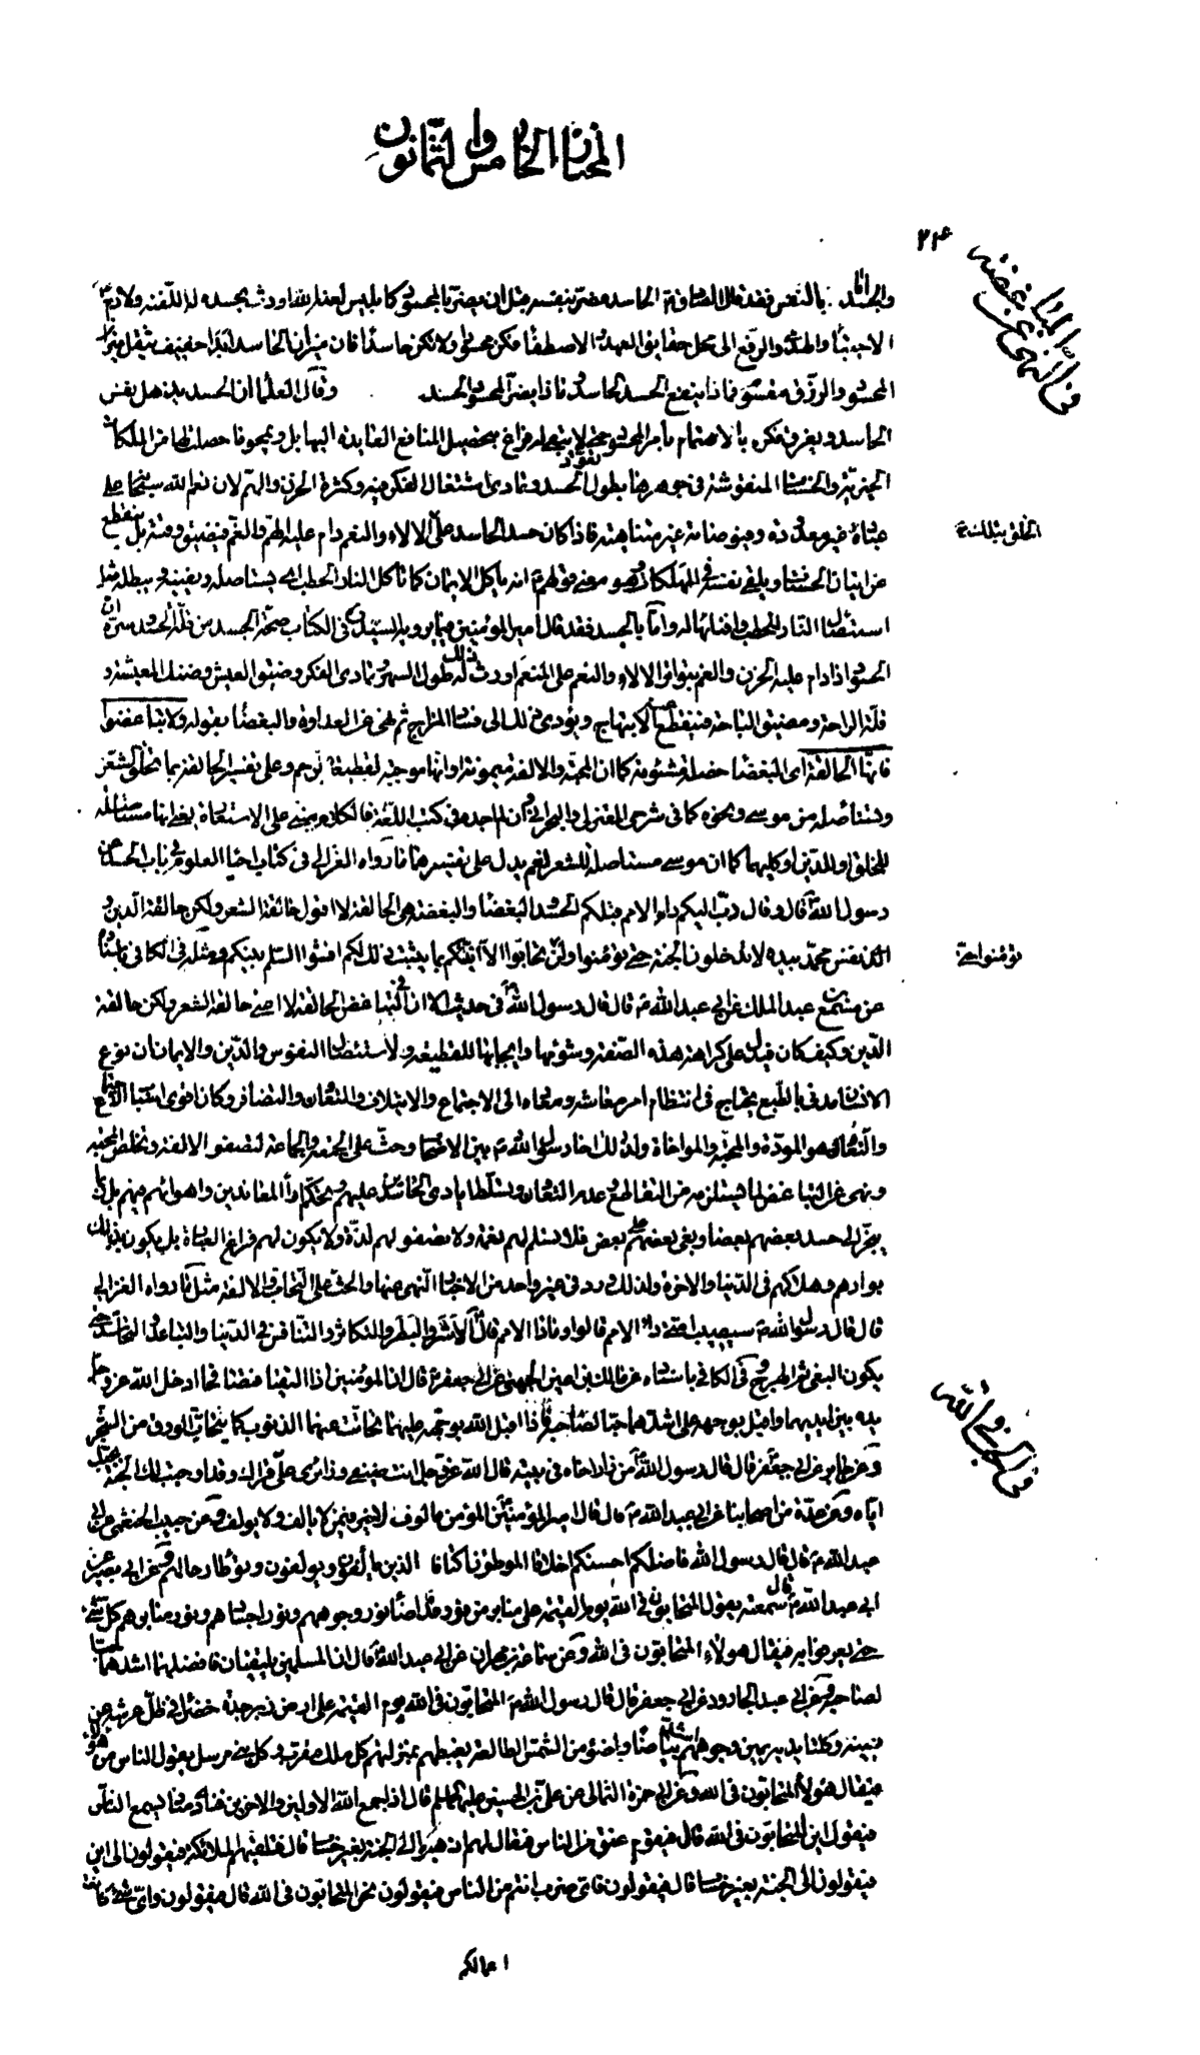 المختار الخامس والثمانون
٢٤
في المباغضة والنهي عن
وامّا بالنفس فقد قال الصادق الحاسد مضرّ بنفسه قبل ان يضرّ بالمحسود كابليس اورث بحسده له اللّعنة ولآدم
الاجتباء والهدى والرفع الى محل حقايق العهد والاصطفاء فكن محسودا ولا تكن حاسدا فان ميزان الحاسد ابدا خفيف بثقل ميزان
المحسود والرزق مقسوم فماذا ينفع الحسد الحاسد فماذا يضرّ المحسود الحسد وقال العلماء ان الحسد يذهل نفس
الحاسد ويغرق فكره بالاهتمام بأمر المحسود حتى لا يبقى له فراغ بتحصيل المنافع العايدة اليها بل ويمحو ما حصلت لها من الملكات
الخيرية والحسنات المنقوشة في جوهرها بطول تعوّد الحسد وتمادى اشتغال الفكر فيه وكثرة الحزن والهمّ لان نعم الله سبحانه على
عباده غير معدودة وفيوضاته غير متناهية فاذا كان حسد الحاسد على الالاء والنعم دام عليه الهمّ والغمّ فيضيق وقته بل ينقطع
الخلق بتلك
عن اتيان الحسنات ويلقى نفسه في المهلكات وهو معنى قولهم انه يأكل الايمان كما تأكل النار الحطب اى يستاصله ويفنيه ويبطله مثل
استيصال النار للحطب وافنائها له وامّا بالجسد فقد قال امير المؤمنين فيما يرويه السيد في الكتاب صحّة الجسد من قلّة الحسد وسرّه ان
الحسود اذا دام عليه الحزن والغم بتواتر الالاء والنعم على المنعم اورث ذلك له طول السهر وتمادى الفكر وضيق العيش وضنك المعيشة و
قلّة الراحة فينقطع الابتهاج ويؤدى ذلك الى فساد المزاج ثم نهى عن العداوة والبغضاء بقوله ولا تباغضوا
فانّها الحالقة اى البغضاء خصلة مشئومة كما ان المحبة والالفة ميمونة وانها موجبة لقطيعة الرحم وعلى تفسير الحالقة بما تحلق الشعر
وتستأصله من موسى ونحوه كما في شرحى المعتزلى والبحراني وان لم اجده في كتب اللّغة فالكلام مبنى على الاستعارة يعنى انها مستأصلة
للخلق او للدّين او كليهما كما ان موسى مستاصلة للشعر نعم يدل على تفسيرهما ما رواه الغزالى في كتاب احياء العلوم في باب الحسد عن
رسول الله قال وقال دبّ اليكم داء الامم قبلكم الحسد والبغضاء والبغضة هي الحالقة لا اقول حالقة الشعر ولكن حالقة الدّين و
الذى نفس محمّد بيده لا تدخلون الجنة حتى تؤمنوا ولن تحابّوا الا انبئكم بما يثبت ذلك لكم افشوا السّلم بينكم ومثله في الكافي باسناده
تؤمنوا حتى
عن مسمع بن عبد الملك عن ابي عبد الله قال قال رسول الله في حديث الا ان في التباغض الحالقة لا اعنى حالقة الشعر ولكن حالقة
الدّين وكيف كان فيدل على كراهة هذه الصّفة وشومها وايجابها للقطيعة ولاستئصال النفوس والدّين والايمان ان نوع
الانسان مدني بالطّبع يحتاج في انتظام امر معاشه ومعاده الى الاجتماع والايتلاف والتعاون والتضافر وكان اقوى اسباب الاجتماع
والتعاون هو المودّة والمحبّة والمواخاة ولذلك اخا رسول الله بين الاصحاب وحثّ على الجمعة والجماعة لتصفو الالفة وتخلص المحبّة
ونهى عن التباغض لما يستلزمه من التقاطع وعدم التعاون وتسلّط ايادى الحاسدين عليهم وتحكّم اراء المعاندين واهوائهم فيهم بل
ينجرّ الى حسد بعضهم بعضا وبغى بعضهم على بعض فلا تسلم لهم نعمة ولا تصفو لهم لذّة ولا يكون لهم فراغ العبادة بل يكون بذلك
بوارهم وهلاكهم في الدّنيا والاخرة ولذلك ورد في غير واحد من الاخبار النّهى عنها والحثّ على التحابّ والالفة مثل ما رواه الغزالى
قال قال رسول الله سيصيب امّتى داء الامم قالوا وما ذا الامم قال الاشر والبطر والتكاثر والتنافس في الدّنيا والتباعد والتحاسد حتى
يكون البغى ثم الهرج وفي الكافي باسناده عن مالك بن اعين الجهنى عن ابي جعفر قال ان المؤمنين اذا التقيا فتصافحا ادخل الله عزّ وجل
يده بين ايديهما واقبل بوجهه على اشدّهما حبّا لصاحبه فاذا اقبل الله بوجهه عليهما تحاتّت عنهما الذنوب كما يتحاتّ الورق من الشجر
في الحبّ في الله
وعن جابر عن ابي جعفر قال قال رسول الله من زار اخاه في بيته قال الله عزّ وجل انت ضيفى وزائرى علىّ قراك وقد اوجبت لك الجنّة بحبّك
ايّاه وعن عدّة من اصحابنا عن ابي عبد الله قال قال امير المؤمنين المؤمن مألوف لا خير فيمن لا يألف ولا يؤلف وعن حبيب الخثعمى عن ابي
عبد الله قال قال رسول الله افاضلكم احسنكم اخلاقا الموطئون اكنافا الذين يألفون ويؤلفون وتوطأ رحالهم وعن ابي بصير عن
ابي عبد الله قال سمعته يقول المتحابّون في الله يوم القيمة على منابر من نور قد اضاء نور وجوههم ونور اجسادهم ونور منابرهم كلّ شئ
حتى يعرفوا به فيقال هؤلاء المتحابّون في الله وعن سماعة بن مهران عن ابي عبد الله قال ان المسلمين يلتقيان فافضلهما اشدهما حبا
لصاحبه وعن ابي الجارود عن ابي جعفر قال قال رسول الله المتحابّون في الله يوم القيمة على ارض زبرجدة خضراء في ظلّ عرشه عن
يمينه وكلتا يديه يمين وجوههم اشدّ بياضا واضوء من الشّمس الطالعة يغبطهم بمنزلتهم كلّ ملك مقرّب وكل نبى مرسل يقول الناس من هؤلاء
فيقال هؤلاء المتحابّون في الله وعن ابي حمزة الثمالى عن علىّ بن الحسين عليهما السلم قال اذا جمع الله الاولين والاخرين قام مناد فيسمع النّاس
فيقول اين المتحابّون في الله قال فيقوم عنق من الناس فيقال لهم اذهبوا الى الجنة بغير حساب قال فتلقيهم الملائكة فيقولون الى اين
فيقولون الى الجنة بغير حساب قال فيقولون فاىّ ضرب انتم من الناس فيقولون نحن المتحابّون في الله قال فيقولون واىّ شئ كانت
اعمالكم